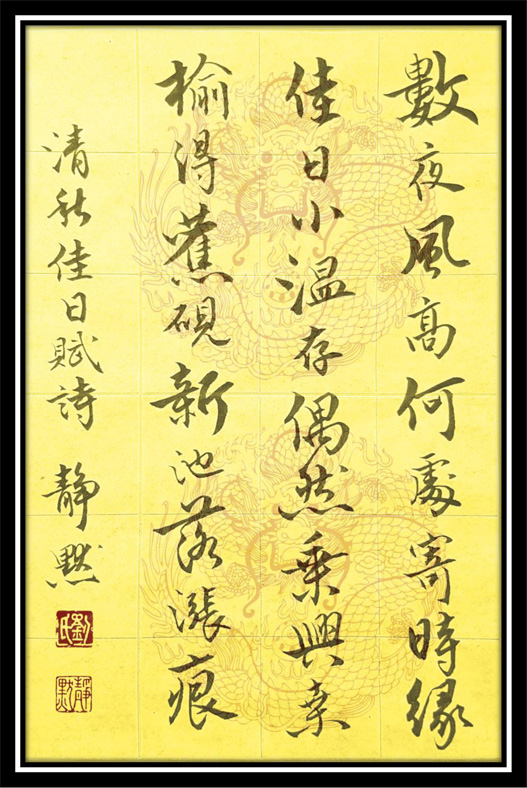 數夜風高何處寄時緣
佳日小温存偶然乘興桒
榆得蕉硯新池落漲痕
清秋佳日賦詩 靜默
劉氏
靜默